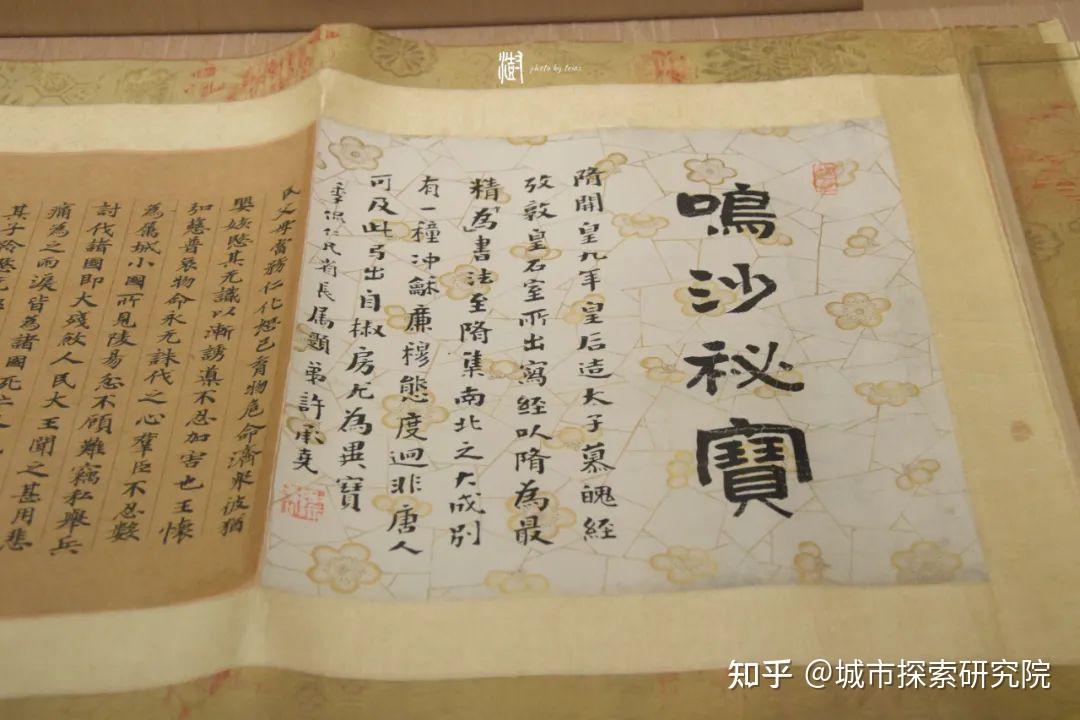 鳴沙秘寶
隋開皇九年皇后造太子慕魄經
攷敦皇石室所出寫經以隋為最
精為書法至隋集南北之大成別
有一種沖龢廉穆態度迥非唐人
可及此乃出自椒房尤為異寶
季侃仁民省長属題弟許承堯
民父母當務仁化恕己育物危命濟衆彼猶
嬰孩愍其无識以漸誘導不忍加害也王懷
弘慈普哀物命永无誅伐之心羣臣不忍數
為属城小國所見陵易忿不顧難竊私舉兵
討伐諸國即大殘煞人民大王聞之甚用悲
痛為之雨淚皆為諸國死亡
其子
澍
photo by
知乎 @城市探索研究院